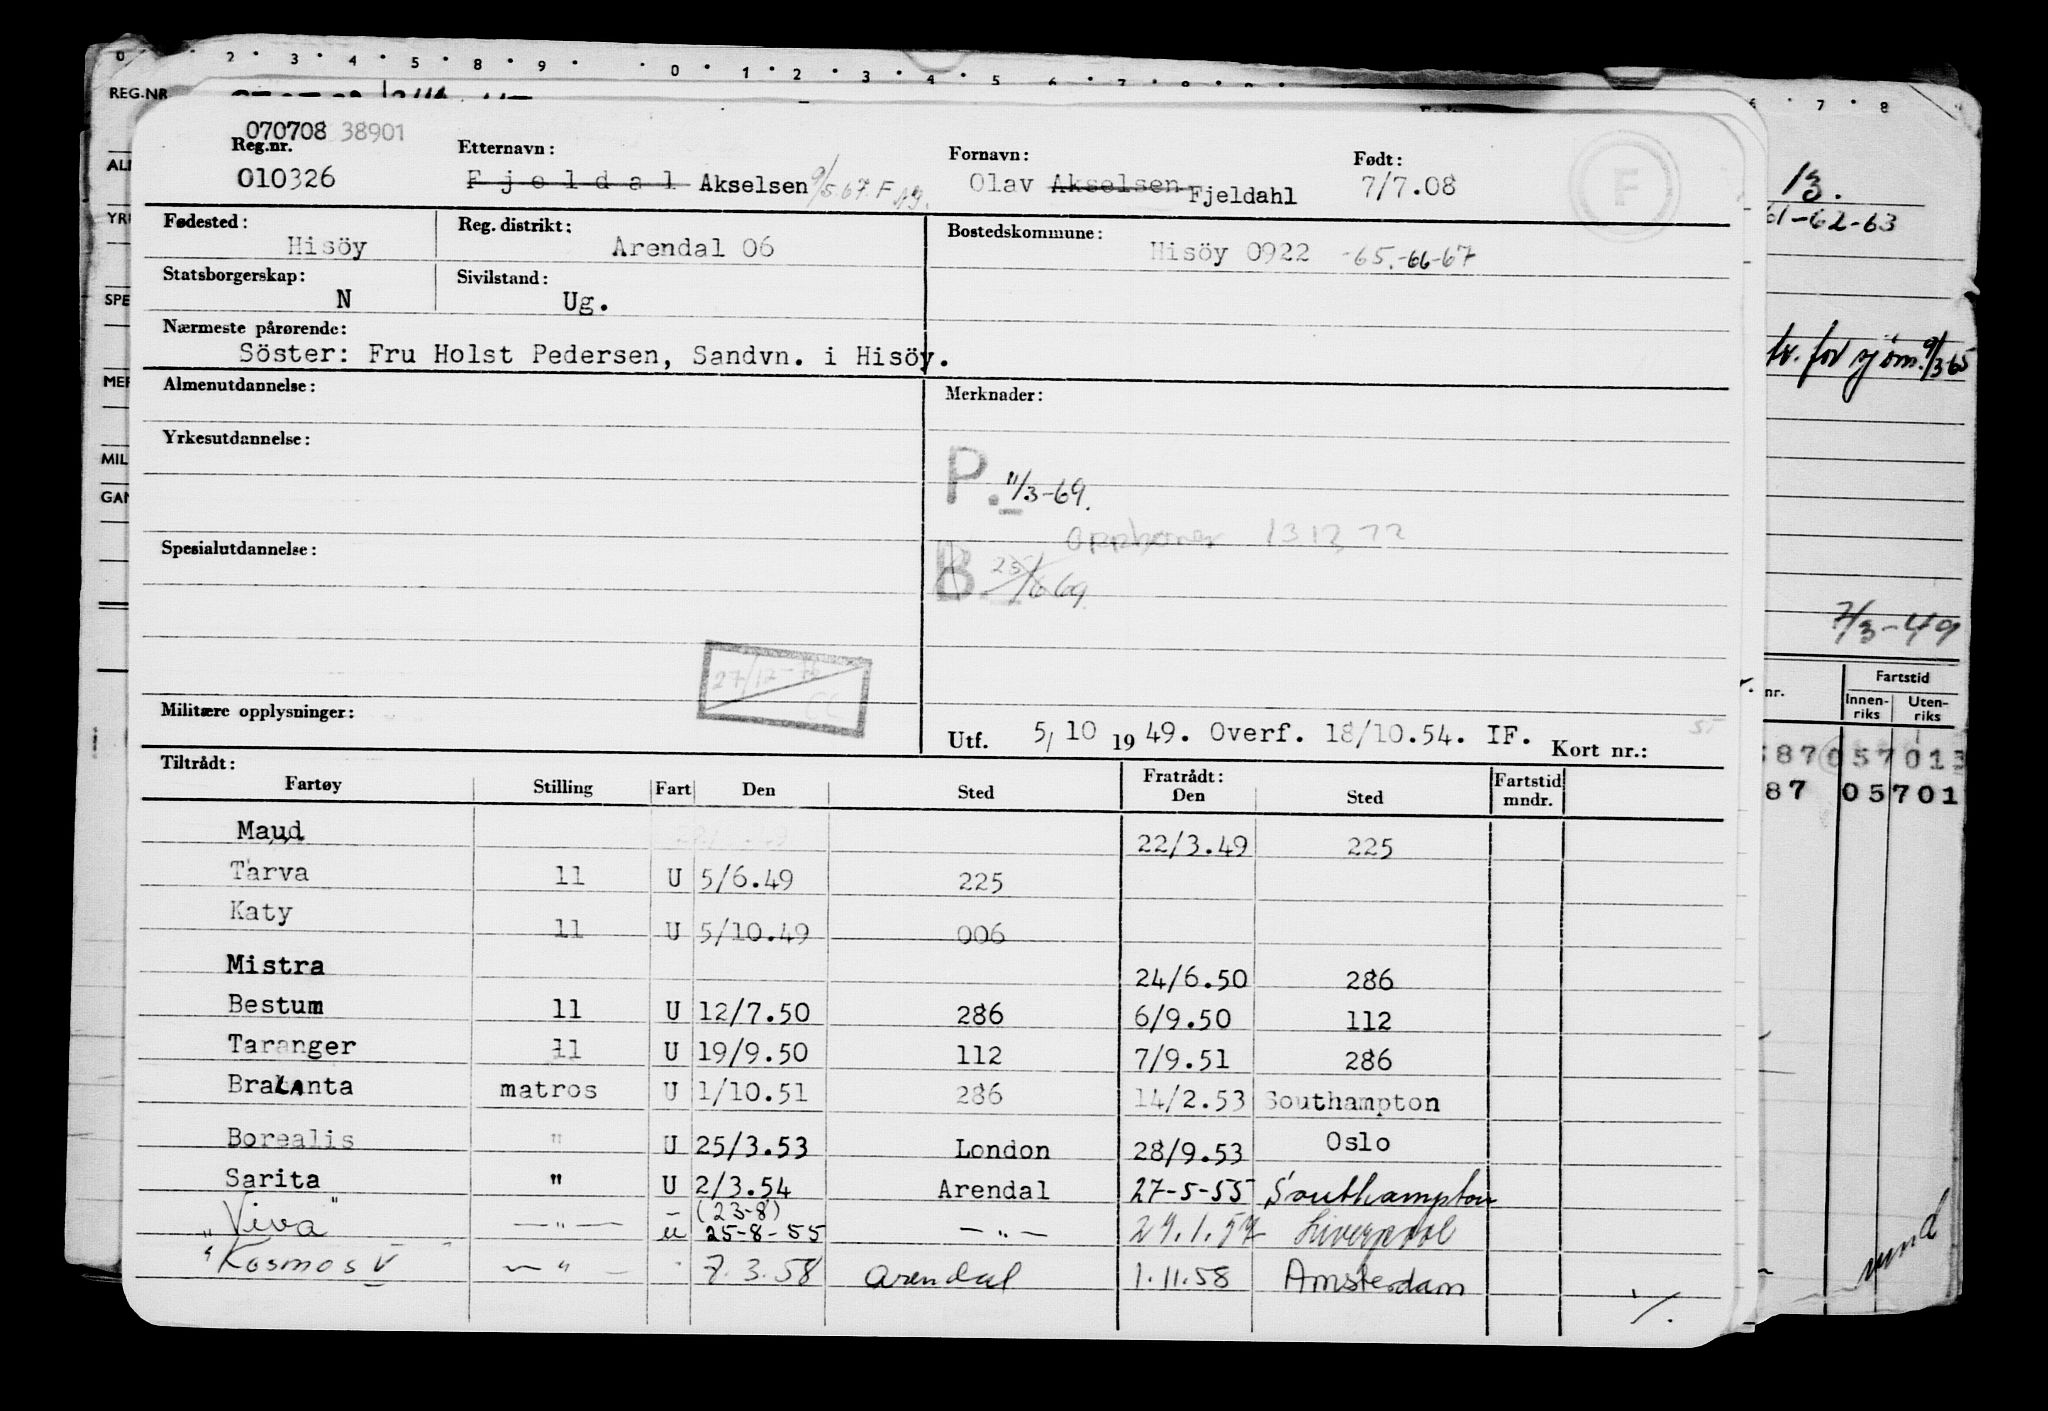 0 2 3 4 5 8 9 0 1 2 3 4 5 6 7 8
REG.NR
7 8
070708 38901
Reg.nr. Etternavn: Fornavn: Født:
010326 Fjeldal Akselsen 9/5.67 F Olav Akselsen Fjeldahl 7/7.08
F
13.
61-62-63
Fødested: Reg. distrikt: Bostedskommune:
Hisöy Arendal 06 Hisöy 0922 -65.-66-67
Statsborgerskap: Sivilstand:
N Ug.
Nærmeste pårørende:
Söster: Fru Holst Pedersen, Sandvn. i Hisöy.
for sjøm. 9/3 65
Almenutdannelse: Merknader:
Yrkesutdannelse:
P. 11/3-69.
Opphører 13 12 72
Spesialutdannelse:
B. 25/6 69
7/3-49
27/12-72
Militære opplysninger:
Utf. 5/10 1949. Overf. 18/10.54. IF. Kort nr.:
nr. Fartstid
Innen-riks Uten-riks
587 057 013
87 05701
Tiltrådt: Fratrådt:
Fartøy Stilling Fart Den Sted Den Sted Fartstid mndr.
Maud 22/3.49 225
Tarva 11 U 5/6.49 225
Katy 11 U 5/10.49 006
Mistra 24/6.50 286
Bestum 11 U 12/7.50 286 6/9.50 112
Taranger 11 U 19/9.50 112 7/9.51 286
Bralanta matros U 1/10.51 286 14/2.53 Southampton
Borealis " U 25/3.53 London 28/9.53 Oslo
Sarita " U 2/3.54 Arendal 27-5-55 Southampton
"Viva" — " — u (23-8) 25-8-55 — " — 29.1.57 Liverpool
"Kosmos V" — " — 7.3.58 Arendal 1.11.58 Amsterdam